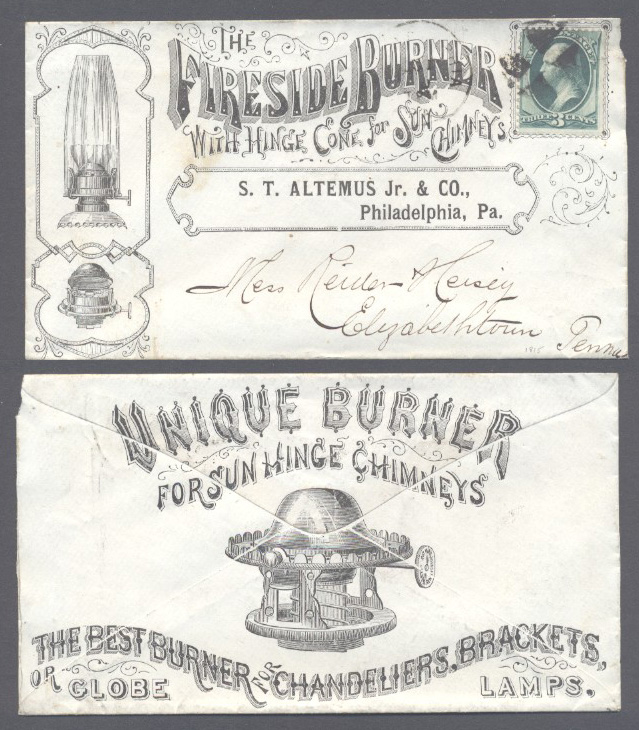 THE
FIRESIDE BURNER
WITH HINGE CONE, for SUN CHIMNEYS.
THREE 3 CENTS
S. T. ALTEMUS Jr. & CO.,
Philadelphia, Pa.
Mess Reider & Heisey
Elizabethtown
Penna
UNIQUE BURNER
FOR SUN HINGE CHIMNEYS
THE BEST BURNER FOR CHANDELIERS, BRACKETS,
OR GLOBE LAMPS.